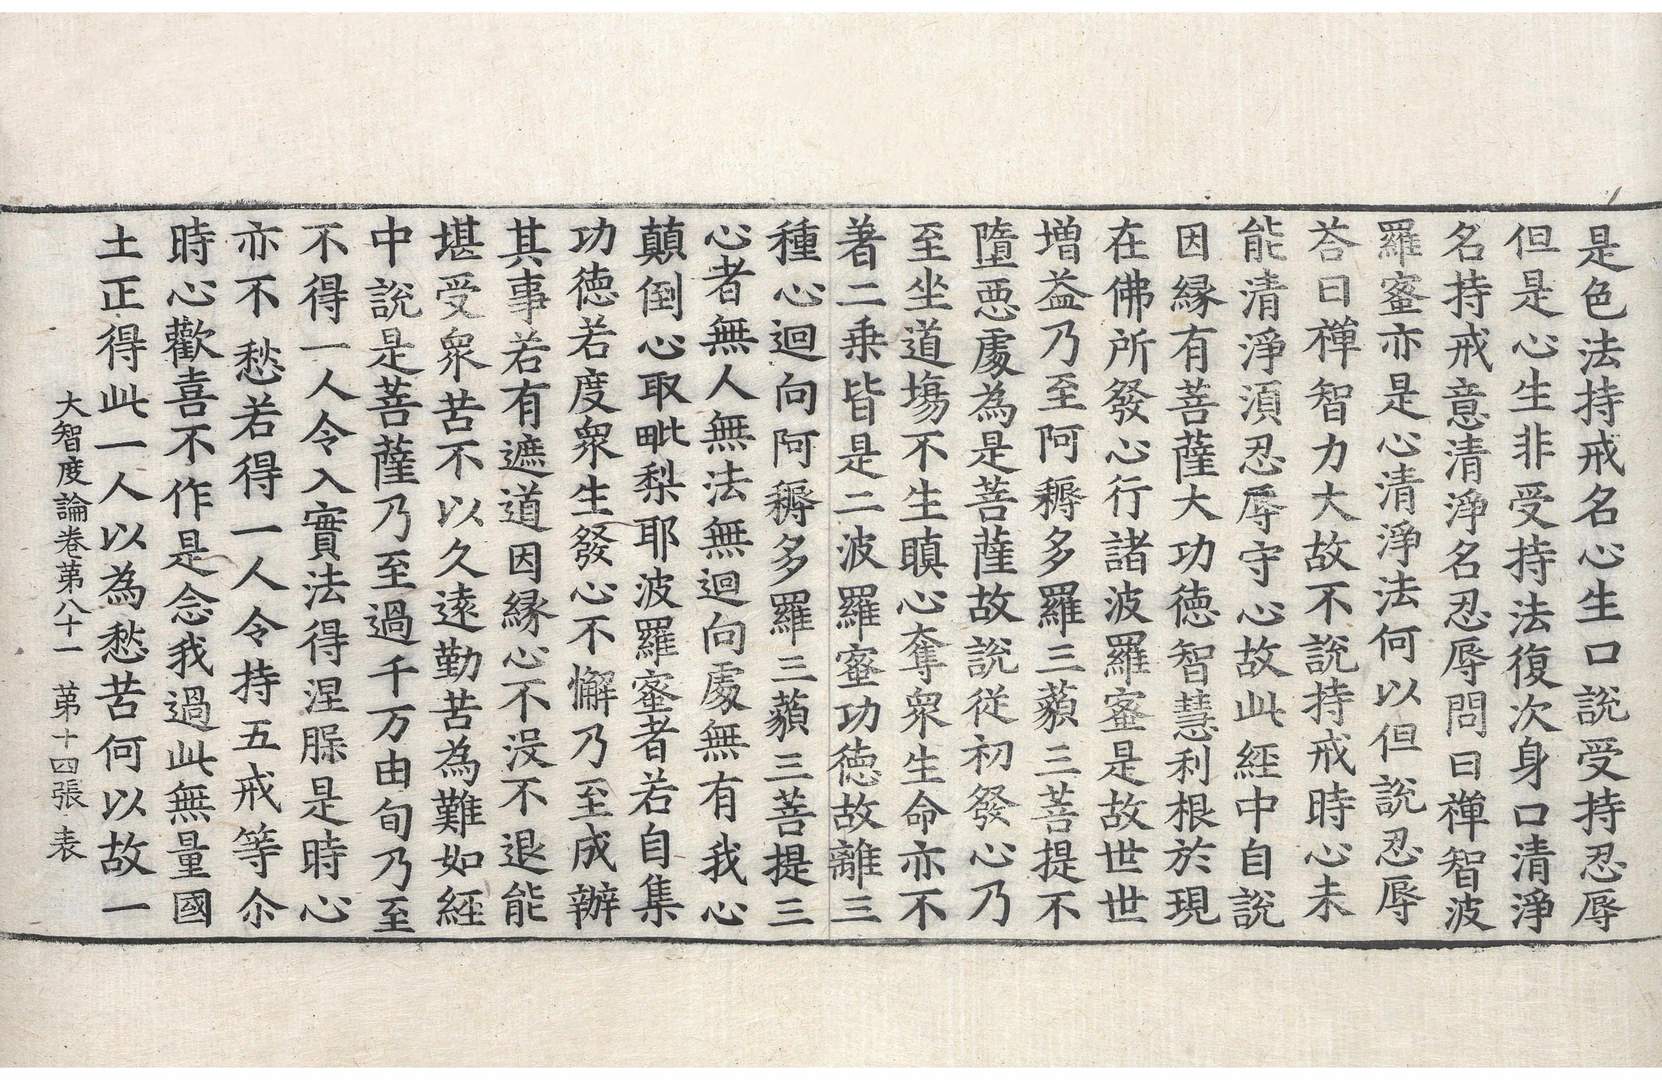 是色法持戒名心生口說受持忍辱
但是心生非受持法復次身口清淨
名持戒意清淨名忍辱問曰禪智波
羅蜜亦是心清淨法何以但說忍辱
荅曰禪智力大故不說持戒時心未
能清淨湏忍辱守心故此經中自說
因緣有菩薩大功德智慧利根於現
在佛所發心行諸波羅蜜是故世世
增益乃至阿耨多羅三藐三菩提不
墮惡處為是菩薩故說從初發心乃
至坐道塲不生瞋心奪衆生命亦不
著二乗皆是二波羅蜜功德故離三
種心迴向阿耨多羅三藐三菩提三
心者無人無法無迴向處無有我心
顛倒心取毗梨耶波羅蜜者若自集
功德若度衆生發心不懈乃至成辦
其事若有遮道因緣心不沒不退能
堪受衆苦不以久遠勤苦為難如經
中說是菩薩乃至過千万由旬乃至
不得一人令入實法得涅槃是時心
亦不愁若得一人令持五戒等尒
時心歡喜不作是念我過此無量國
土正得此一人以為愁苦何以故一
大智度論卷第八十一 第十四張 表